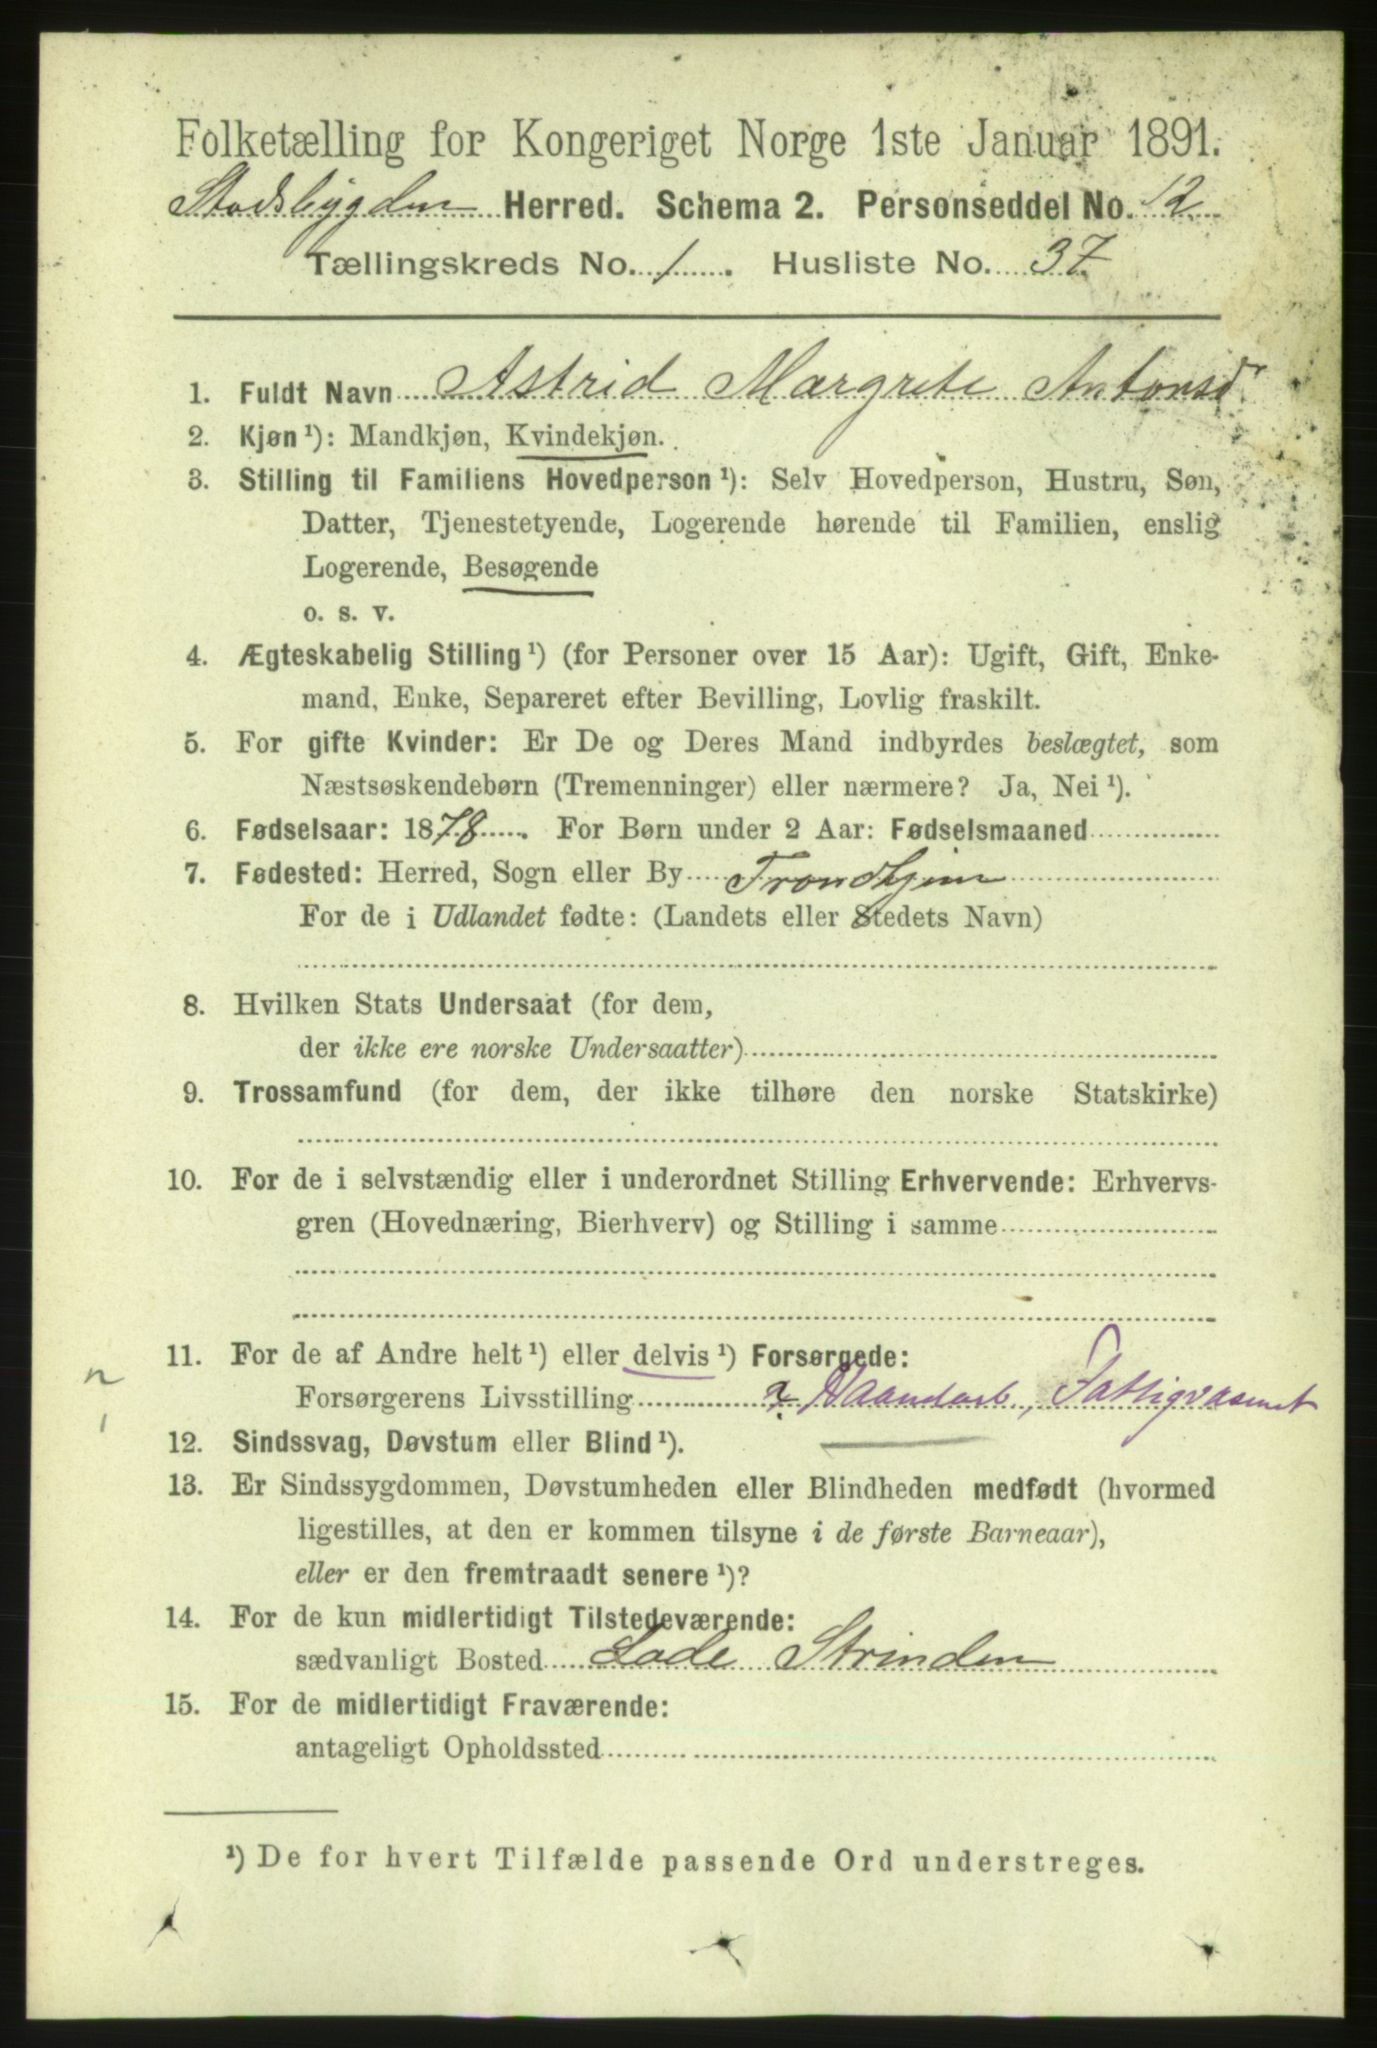 Folketælling for Kongeriget Norge 1ste Januar 1891.
Stadsbygden Herred. Schema 2. Personseddel No. 12
Tællingskreds No. 1. Husliste No. 37
1. Fuldt Navn Astrid Margrete Antonsdr
2. Kjøn ¹): Mandkjøn, Kvindekjøn.
3. Stilling til Familiens Hovedperson ¹): Selv Hovedperson, Hustru, Søn,
Datter, Tjenestetyende, Logerende hørende til Familien, enslig
Logerende, Besøgende
o. s. v.
4. Ægteskabelig Stilling ¹) (for Personer over 15 Aar): Ugift, Gift, Enke-
mand, Enke, Separeret efter Bevilling, Lovlig fraskilt.
5. For gifte Kvinder: Er De og Deres Mand indbyrdes beslægtet, som
Næstsøskendebørn (Tremenninger) eller nærmere? Ja, Nei ¹).
6. Fødselsaar: 1878. For Børn under 2 Aar: Fødselsmaaned
7. Fødested: Herred, Sogn eller By Trondhjem
For de i Udlandet fødte: (Landets eller Stedets Navn)
8. Hvilken Stats Undersaat (for dem,
der ikke ere norske Undersaatter)
9. Trossamfund (for dem, der ikke tilhøre den norske Statskirke)
10. For de i selvstændig eller i underordnet Stilling Erhvervende: Erhvervs-
gren (Hovednæring, Bierhverv) og Stilling i samme
11. For de af Andre helt ¹) eller delvis ¹) Forsørgede:
Forsørgerens Livsstilling Haandarb., Fattigvæsenet
12. Sindssvag, Døvstum eller Blind ¹).
13. Er Sindssygdommen, Døvstumheden eller Blindheden medfødt (hvormed
ligestilles, at den er kommen tilsyne i de første Barneaar),
eller er den fremtraadt senere ¹)?
14. For de kun midlertidigt Tilstedeværende:
sædvanligt Bosted Lade Strinden
15. For de midlertidigt Fraværende:
antageligt Opholdssted
¹) De for hvert Tilfælde passende Ord understreges.